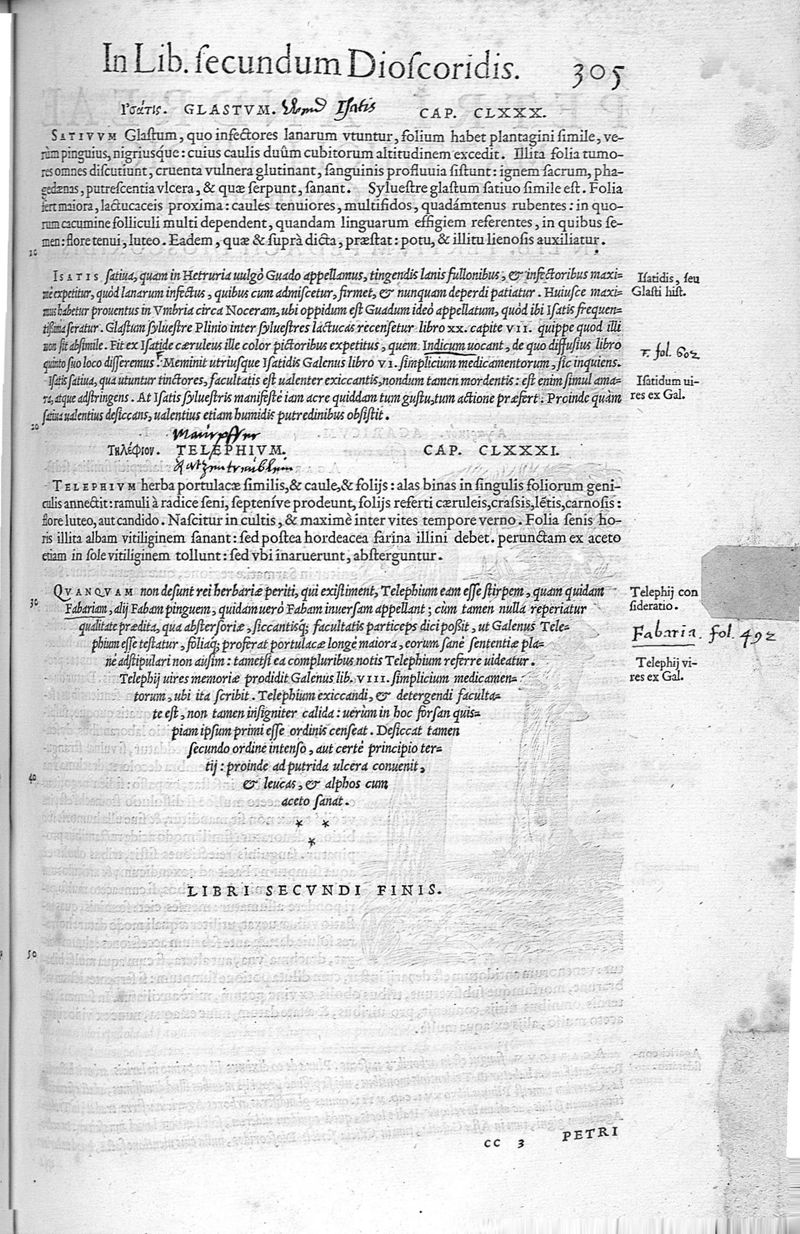 In Lib. ſecundum Dioſcoridis. 305
Ἰσάτις. GLASTVM. Isatis CAP. CLXXX.
SATIVVM Glaſtum, quo infectores lanarum vtuntur, folium habet plantagini ſimile, ve-
rùm pinguius, nigriusque: cuius caulis duûm cubitorum altitudinem excedit. Illita folia tumo-
res omnes diſcutiunt, cruenta vulnera glutinant, ſanguinis profluuia ſiſtunt: ignem ſacrum, pha-
gedænas, putreſcentia vlcera, & quæ ſerpunt, ſanant. Sylueſtre glaſtum ſatiuo ſimile eſt. Folia
fert maiora, lactucaceis proxima: caules tenuiores, multifidos, quadámtenus rubentes: in quo-
rum cacumine folliculi multi dependent, quandam linguarum effigiem referentes, in quibus ſe-
men: flore tenui, luteo. Eadem, quæ & ſuprà dicta, præſtat: potu, & illitu lienoſis auxiliatur.
10
ISATIS ſatiua, quam in Hetruria uulgò Guado appellamus, tingendis lanis fullonibus, & infectoribus maxi=
mè expetitur, quòd lanarum infectus, quibus cum admiſcetur, firmet, & nunquam deperdi patiatur. Huiusce maxi=
mus habetur prouentus in Vmbria circa Noceram, ubi oppidum eſt Guadum ideò appellatum, quòd ibi Iſatis frequen=
tißima ſeratur. Glaſtum ſylueſtre Plinio inter ſylueſtres lactucas recenſetur libro XX. capite VII. quippe quod illi
non ſit abſimile. Fit ex Iſatide cæruleus ille color pictoribus expetitus, quem Indicum uocant, de quo diffuſius libro
quinto ſuo loco diſſeremus. Meminit utriuſque Iſatidis Galenus libro VI. ſimplicium medicamentorum, ſic inquiens.
Iſatis ſatiua, qua utuntur tinctores, facultatis eſt ualenter exiccantis, nondum tamen mordentis: eſt enim ſimul ama=
ra, atque adſtringens. At Iſatis ſylueſtris manifeſtè iam acre quiddam tum guſtu, tum actione præfert. Proinde quàm
ſatiua ualentius deſiccans, ualentius etiam humidis putredinibus obſiſtit.
Iſatidis, ſeu
Glaſti hiſt.
fol. 602
Iſatidum ui-
res ex Gal.
20
Maurpffer
Τηλέφιον. TELEPHIVM. CAP. CLXXXI.
TELEPHIVM herba portulacæ ſimilis, & caule, & folijs: alas binas in ſingulis foliorum geni-
culis annectit: ramuli à radice ſeni, ſeptenive prodeunt, folijs referti cæruleis, craſsis, lẽtis, carnoſis:
flore luteo, aut candido. Naſcitur in cultis, & maximè inter vites tempore verno. Folia ſenis ho-
ris illita albam vitiliginem ſanant: ſed poſtea hordeacea farina illini debet. perunctam ex aceto
etiam in ſole vitiliginem tollunt: ſed vbi inaruerunt, abſterguntur.
QVANQVAM non deſunt rei herbariæ periti, qui exiſtiment, Telephium eam eſſe ſtirpem, quam quidam
30
Fabariam, alij Fabam pinguem, quidam uerò Fabam inuerſam appellant; cùm tamen nulla reperiatur
qualitate prædita, qua abſterſoriæ, ſiccantisq; facultatis particeps dici poßit, ut Galenus Tele=
phium eſſe teſtatur, foliaq; proferat portulacæ longè maiora, eorum ſanè ſententiæ pla=
nè adſtipulari non auſim: tametſi ea compluribus notis Telephium referre uideatur.
Telephij uires memoriæ prodidit Galenus lib. VIII. ſimplicium medicamen=
torum, ubi ita ſcribit. Telephium exiccandi, & detergendi faculta=
te eſt, non tamen inſigniter calida: uerùm in hoc forſan quis=
piam ipſum primi eſſe ordinis cenſeat. Deſiccat tamen
ſecundo ordine intenſo, aut certè principio ter=
tij: proinde ad putrida ulcera conuenit,
40
& leucas, & alphos cum
aceto ſanat.
* *
*
Telephij con
ſideratio.
Fabaria. fol. 492
Telephij vi-
res ex Gal.
LIBRI SECVNDI FINIS.
50
CC 3 PETRI